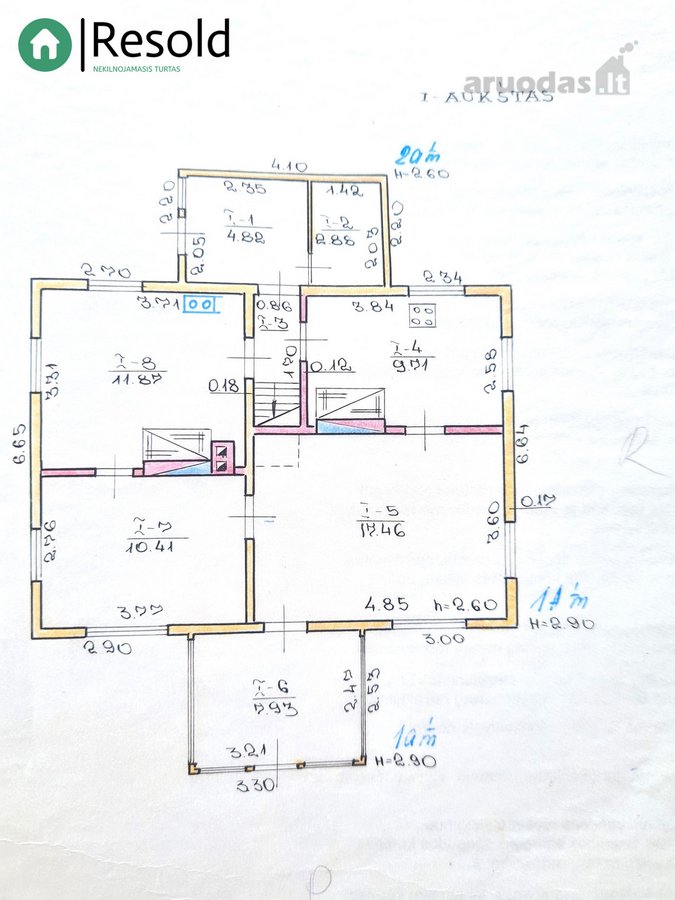 Resold
NEKILNOJAMASIS TURTAS
aruodas.lt
I-AUKŠTAS
4.10
H=2.60
2.20
2.35
1.42
I-1
4.82
I-2
2.88
2.05
2.03
2.20
2.70
2.34
3.71
0.86
I-3
3.84
I-8
11.87
I-4
9.71
3.31
1.20
0.12
2.58
0.18
6.65
6.64
I-7
10.41
I-5
17.46
0.17
2.76
3.60
3.77
4.85
h=2.60
2.90
3.00
H=2.90
I-6
7.93
2.47
2.53
3.21
H=2.90
3.30
P